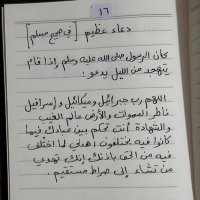 ١٦
دعاء عظيم [في صحيح مسلم]
كان الرسول صلى الله عليه وسلم إذا قام
يتهجد من الليل يدعو :
اللهم رب جبرائيل وميكائيل وإسرافيل
فاطر السموات والأرض عالم الغيب
والشهادة أنت تحكم بين عبادك فيما
كانوا فيه يختلفون اهدني لما اختلف
فيه من الحق بإذنك إنك تهدي
من تشاء إلى صراط مستقيم .